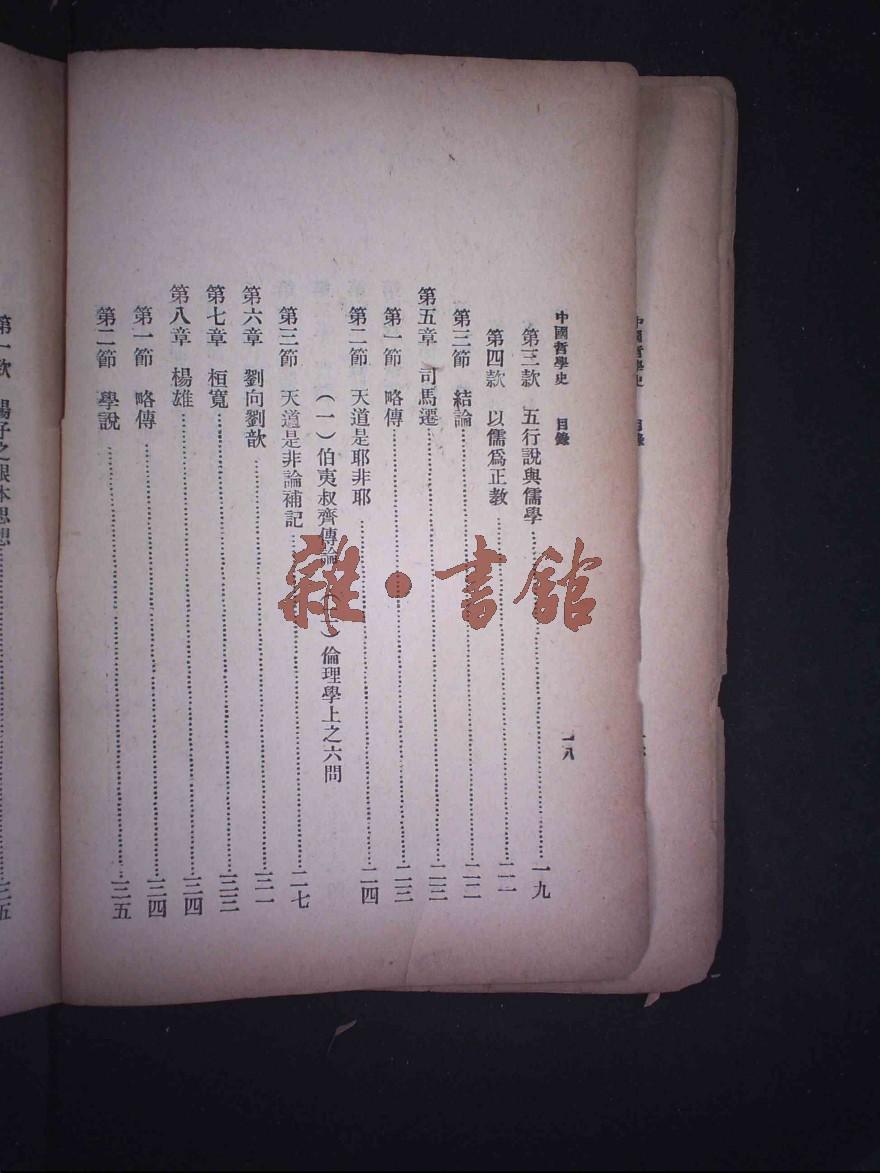 中國哲學史　目錄　一八
第三款　五行說與儒學……一九
第四款　以儒爲正教……二一
第三節　結論……二二
第五章　司馬遷……二三
第一節　略傳……二三
第二節　天道是耶非耶……二四
（一）伯夷叔齊傳論（二）倫理學上之六問
第三節　天道是非論補記……二七
第六章　劉向劉歆……三一
第七章　桓寬……三三
第八章　楊雄……三四
第一節　略傳……三四
第二節　學說……三五
第一款　楊子之根本思想……三五
雜·書館
中國哲學史　目錄